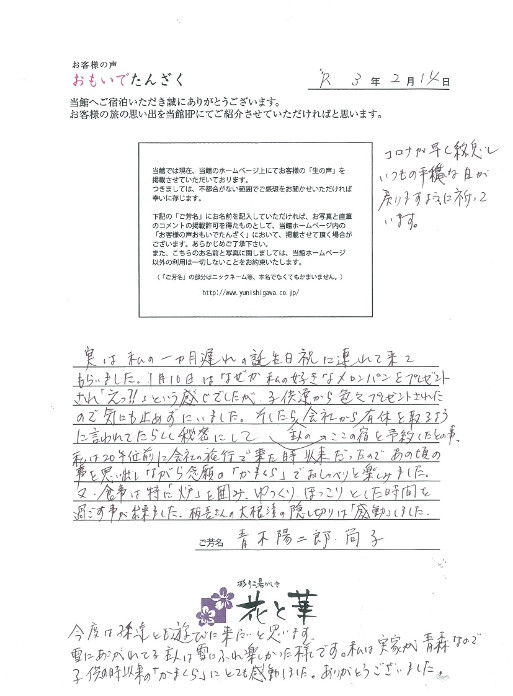 お客様の声
おもいでたんざく
R 3年2月14日
当館へご宿泊いただき誠にありがとうございます。
お客様の旅の思い出を当館HPにてご紹介させていただければと思います。
コロナが早く終息し
いつもの平穏な日が
戻りますように祈って
います。
当館では現在、当館のホームページ上にてお客様の「生の声」を
掲載させていただいております。
つきましては、不都合がない範囲でご感想をお聞かせいただければ
幸いに存じます。
下記の「ご芳名」にお名前を記入していただければ、お写真と直筆
のコメントの掲載許可を得たものとして、当館ホームページ内の
「お客様の声おもいでたんざく」において、掲載させて頂く場合が
ございます。あらかじめご了承下さい。
また、こちらのお名前と写真に関しましては、当館ホームページ
以外の利用は一切しないことをお約束いたします。
(「ご芳名」の部分はニックネーム等、本名でなくてもかまいません。)
http://www.yunishigawa.co.jp/
実は私の一カ月遅れの誕生日祝に連れて来て
もらいました。1月10日はなぜか私の好きなメロンパンをプレゼント
され「えっ?!」という感じでしたが、子供達から色々プレゼントされた
ので気にも止めずにいました。そしたら会社から有休を取るよう
に言われてたらしく秘密にして 主人が ここの宿を予約したとの事、
私は20年位前に会社の旅行で来た時以来だったのであの頃の
事を思い出しながら念願の「かまくら」でおしゃべりと楽しみました。
又、食事は特に「炉」を囲み、ゆっくり、ほっこりとした時間を
過ごす事が出来ました。板長さんの大根汁の隠し切りは「感動」しました。
ご芳名 青木陽二郎・尚子
花と華
今度は孫達とも遊びに来たいと思います。
雪にあこがれてる主人は雪にふれ楽しかった様です。私は実家が青森なので
子供の時以来の「かまくら」にとても感動しました。ありがとうございました。